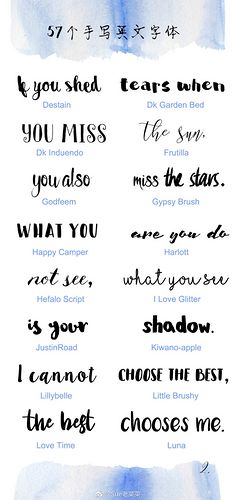 57个手写英文字体
If you shed tears when
Destain Dk Garden Bed
YOU MISS the sun,
Dk Induendo Frutilla
you also miss the stars.
Godfeem Gypsy Brush
WHAT YOU are you do
Happy Camper Harlott
not see, what you see
Hefalo Script I Love Glitter
is your shadow.
JustinRoad Kiwano-apple
I cannot CHOOSE THE BEST,
Lillybelle Little Brushy
the best chooses me.
Love Time Luna
2.